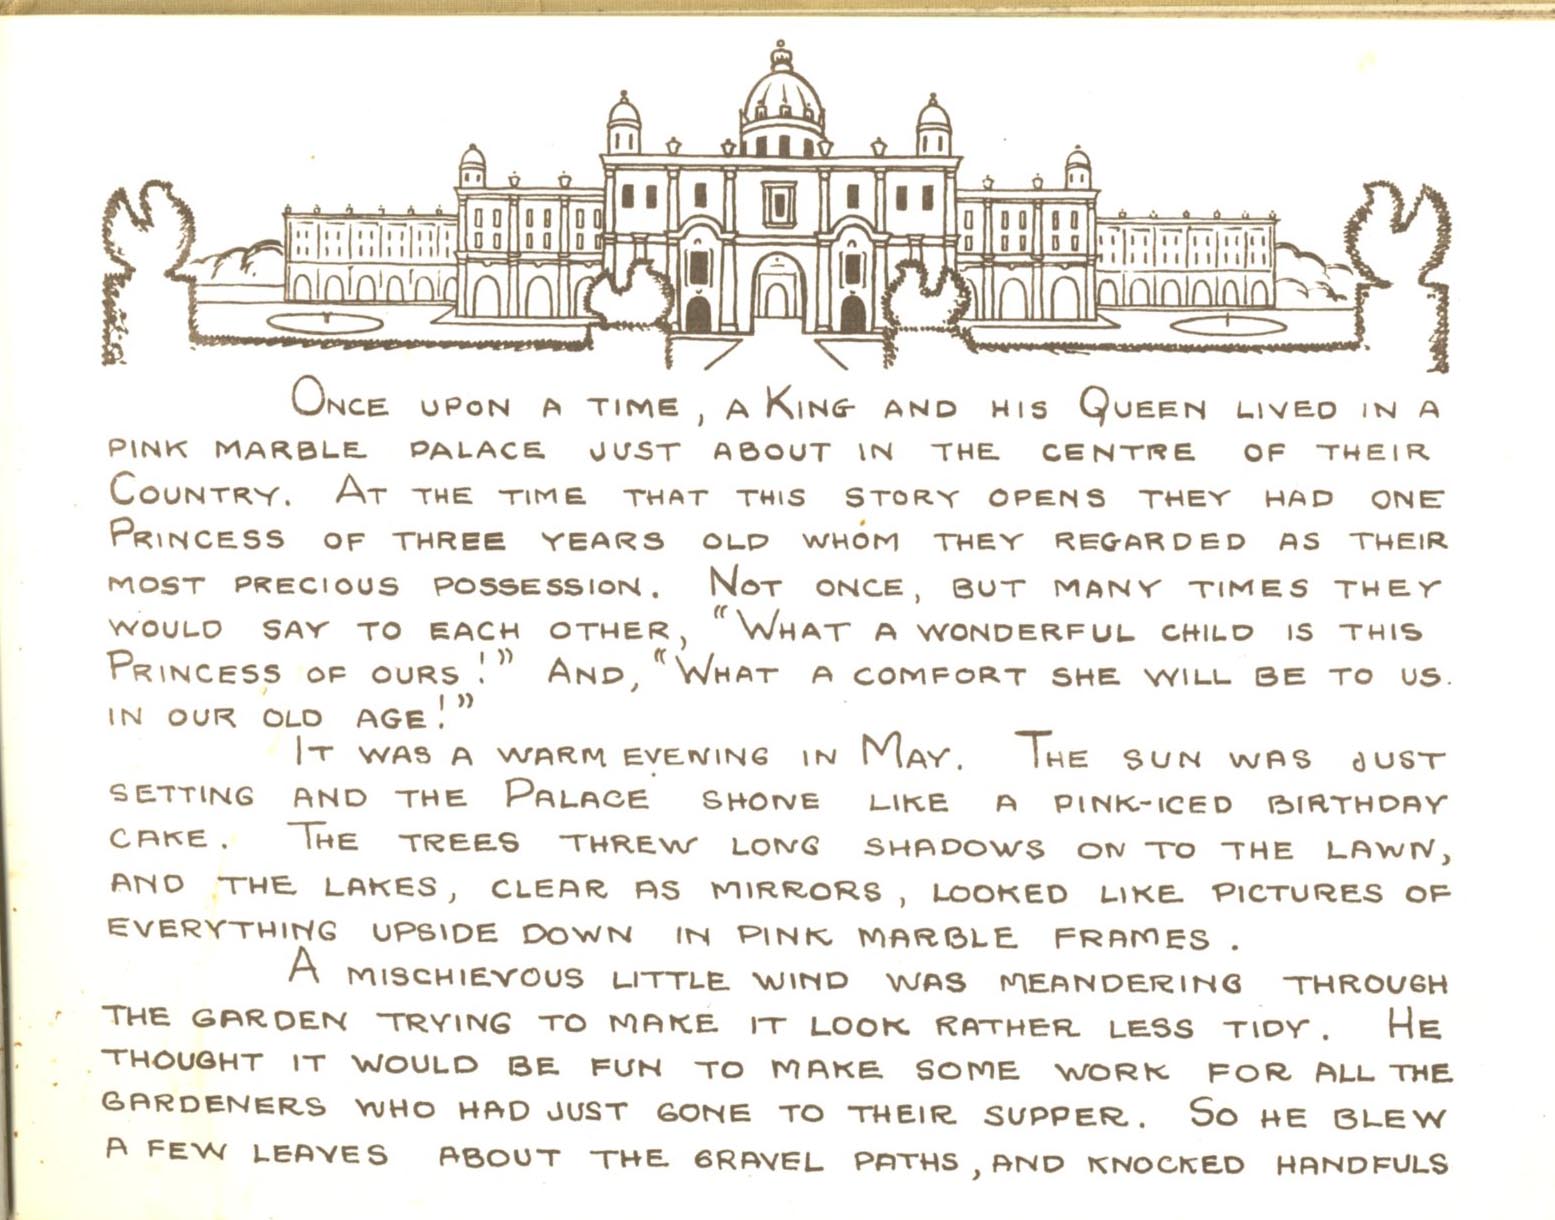 ONCE UPON A TIME, A KING AND HIS QUEEN LIVED IN A
PINK MARBLE PALACE JUST ABOUT IN THE CENTRE OF THEIR
COUNTRY. AT THE TIME THAT THIS STORY OPENS THEY HAD ONE
PRINCESS OF THREE YEARS OLD WHOM THEY REGARDED AS THEIR
MOST PRECIOUS POSSESSION. NOT ONCE, BUT MANY TIMES THEY
WOULD SAY TO EACH OTHER, "WHAT A WONDERFUL CHILD IS THIS
PRINCESS OF OURS!" AND, "WHAT A COMFORT SHE WILL BE TO US.
IN OUR OLD AGE!"
IT WAS A WARM EVENING IN MAY. THE SUN WAS JUST
SETTING AND THE PALACE SHONE LIKE A PINK-ICED BIRTHDAY
CAKE. THE TREES THREW LONG SHADOWS ON TO THE LAWN,
AND THE LAKES, CLEAR AS MIRRORS, LOOKED LIKE PICTURES OF
EVERYTHING UPSIDE DOWN IN PINK MARBLE FRAMES.
A MISCHIEVOUS LITTLE WIND WAS MEANDERING THROUGH
THE GARDEN TRYING TO MAKE IT LOOK RATHER LESS TIDY. HE
THOUGHT IT WOULD BE FUN TO MAKE SOME WORK FOR ALL THE
GARDENERS WHO HAD JUST GONE TO THEIR SUPPER. SO HE BLEW
A FEW LEAVES ABOUT THE GRAVEL PATHS, AND KNOCKED HANDFULS